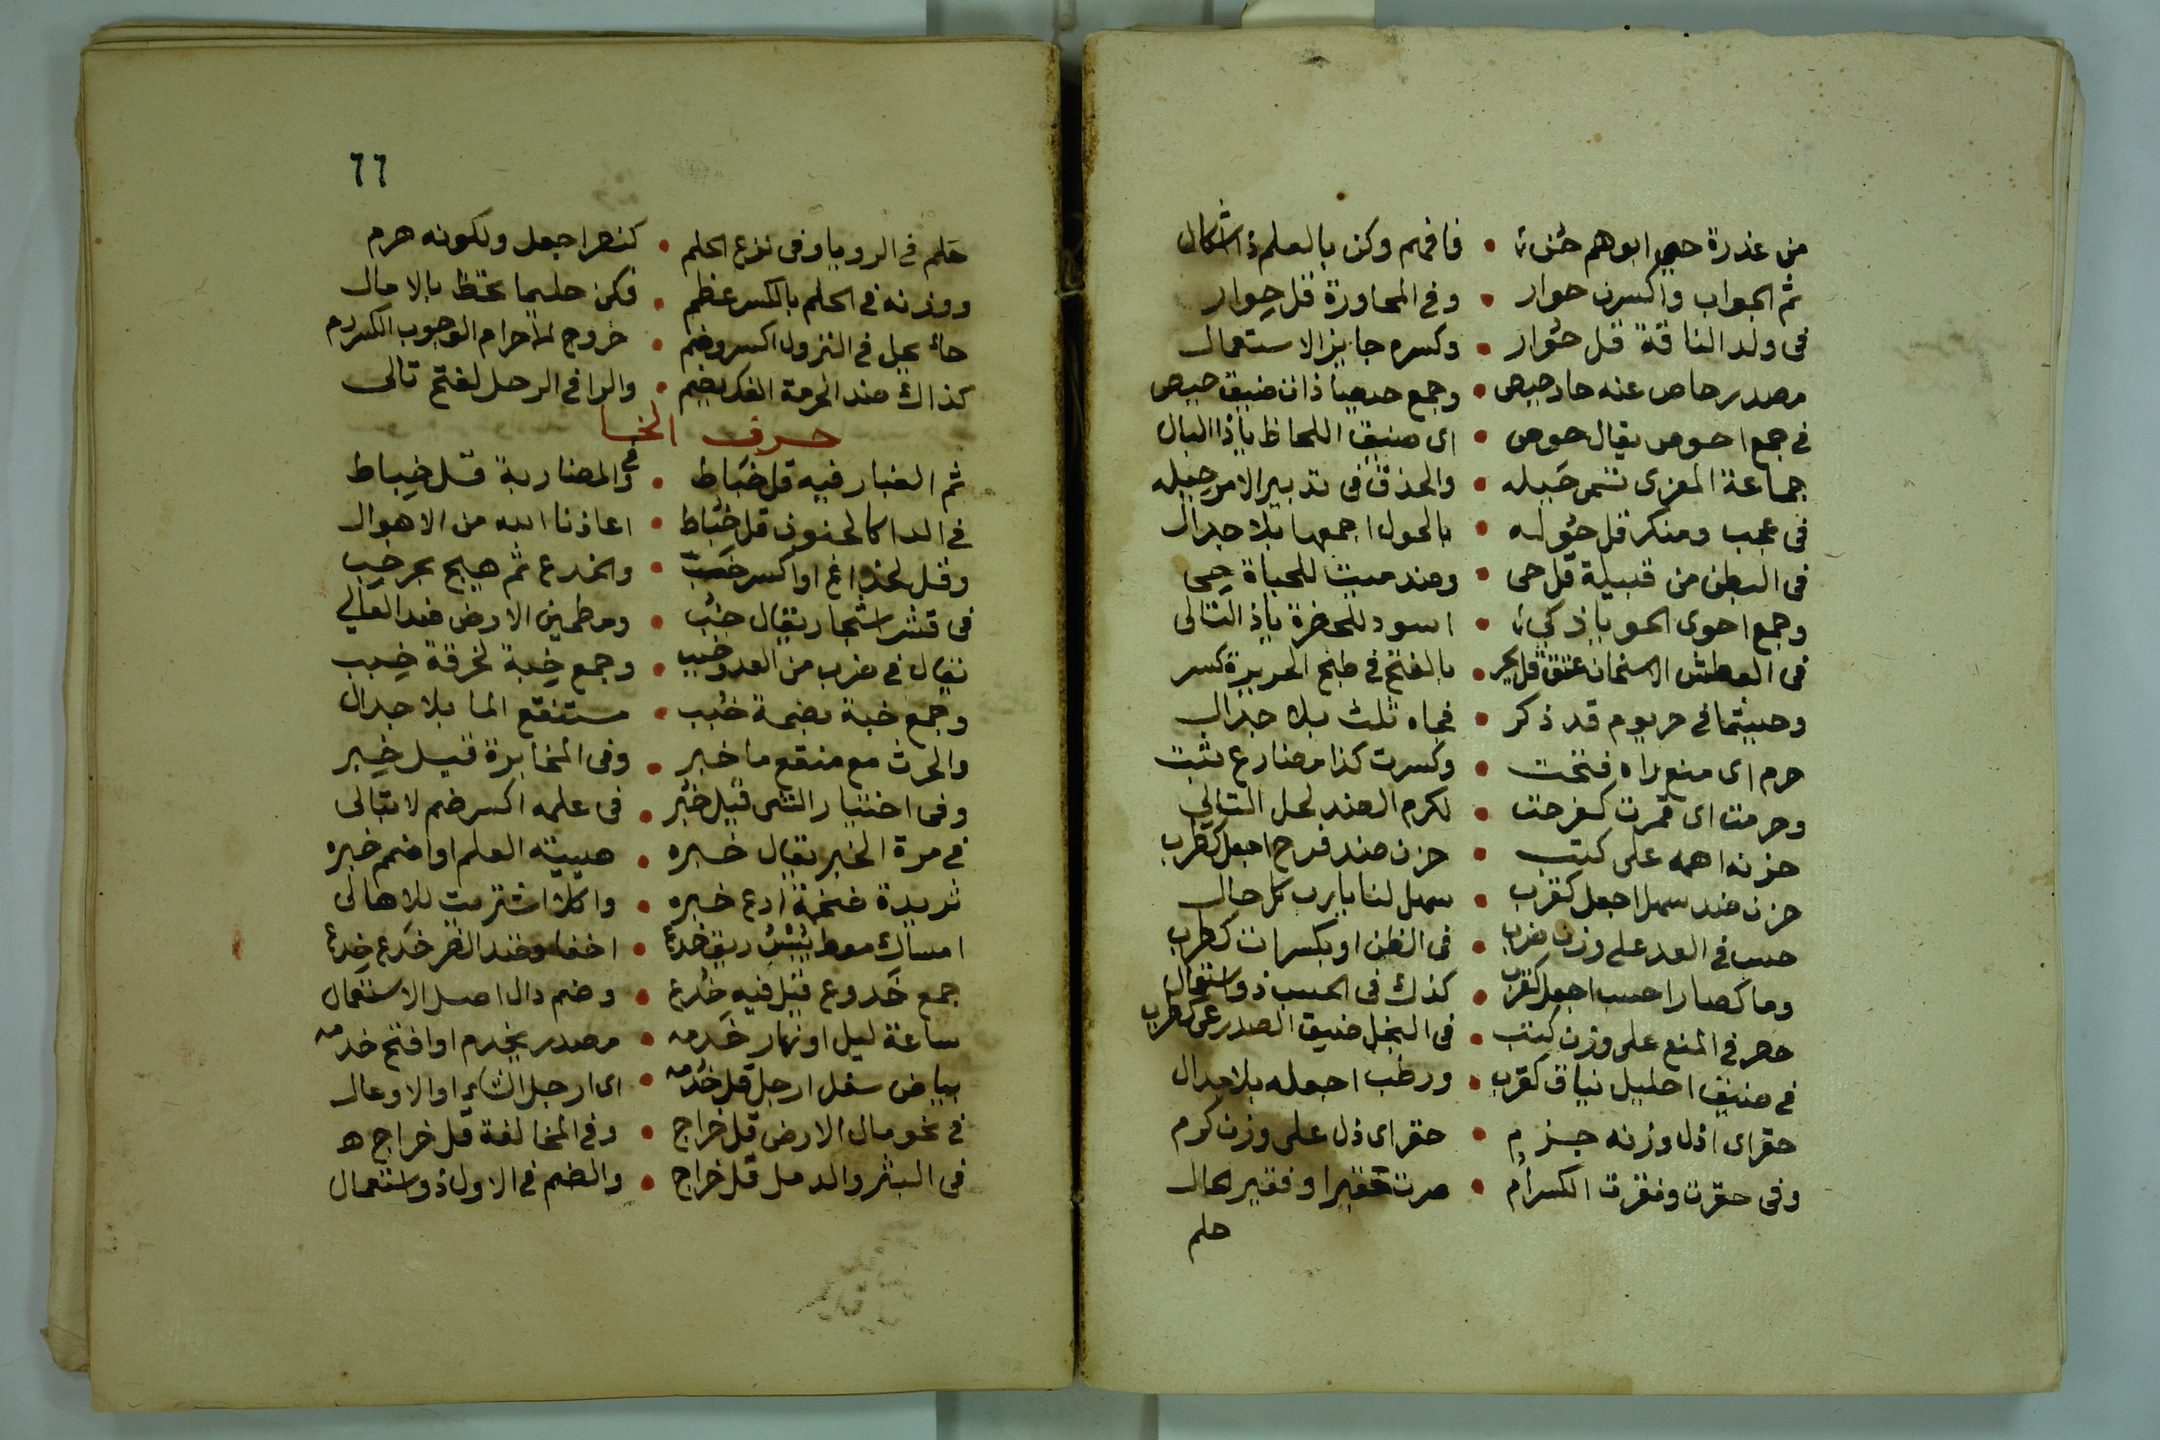 من عذرة حي ابوهم حُنّ • فافهم وكن بالعلم ذا اشكال
ثم الجواب واكسرن حوار • وفي المحاورة قل حِوار
في ولد الناقة قل حُوار • وكسره جايز الاستعمال
مصدر حاص عنه حاد حيص • وجمع ضيق حيص
في جمع احوص يقال حوص • اى ضيق اللحاظ ياذا البال
جماعة المعزى تسمى حَيله • والحذق في تدبير الامر حِيله
في عجب ومنكر قل حُوله • بالحول اجمعها بلا جدال
في البطن من قبيلة قل حى • وضد ميت للحياة حِى
وجمع احوى الحو ياذ • اسود للخضرة ياذ التالى
في العطش • بالفتح في طبخ الحريرة كسر
قد ذكر • فجاه ثلث بلا جدال
حرم اى منع راه فتحت • وكسرت كذا مضارع ثبت
وحرمت اى قمرت كفرحت • لكرم الضد لحل التالي
حزنه اهمه على كتب • حزن ضد فرح اجعل كطرب
حزن ضد سهل اجعل كقرب • سهل لنا يارب كل حال
حسب في العد على وزن ضرب • في الظن او بكسرات كطرب
وما كصار احسب اجعل كقرب • كذك في الحسب ذو استعمال
حصر في المنع على وزن كتب • في البخل ضيق الصدر عى كطرب
في ضيق احليل نياق كقرب • ورطب اجعله بلا جدال
حقر اى اذل وزنه جزم • حقر اى ذل على وزن كرم
وفي حقرت ونقرت الكسرام • صرت حقيرا وفقير الحال
حلم
٦٦
حَلم في الرويا وفي نزع الحلم • كنصر اجعل ولكونه هرم
ووزنه في الحلم بالكسر عظم • فكن حليما تحظ بالامال
حاء يحل في النزول اكسر وضم • خروج الاحرام الوجوب الكسر دم
كذاك ضد الحرمة الفكر يضم • والرا في الرحل لفتح تالى
حرف الخا
ثم الغبار فيه قل خَباط • وفي المضاربة قل خِباط
في الدا كالجنون قل خُباط • اعاذنا الله من الاهوال
وقل لخداع او اكسر خَب • والخدع ثم هيج بحر خِب
في قشر اشجار يقال خُب • ومطمين الارض ضد العالي
يقال في ضرب من العدو خبب • وجمع خِبة لخرقة خِبب
وجمع خبة بضمة خُبب • مستنقع الما بلا جدال
والحرث مع منقع ما خبر • وفي المخابرة قيل خِبر
وفي اختبار الشى قيل خُبر • في علمه اكسر ضم لا تبالى
في مرة الخبر يقال خبره • هيئة العلم او اضم خبره
ثريدة ضخمة ادع خبره • واكلا اشتريت للاهالى
امساك معط • اخفا وضد النفر خَدع خِدع
جمع خَدوع قيل فيه خُدع • وضم دال اصل الاستعمال
ساعة ليل او نهار خَدمه • مصدر يخدم او افتح خدمه
بياض سفل ارجل قل خُدمه • اى ارجل الشاء او الاوعال
في نحو مال الارض قل خراج • وفي المخالفة قل خراج
في البثر والدمل قل خراج • والضم في الاول ذو استعمال